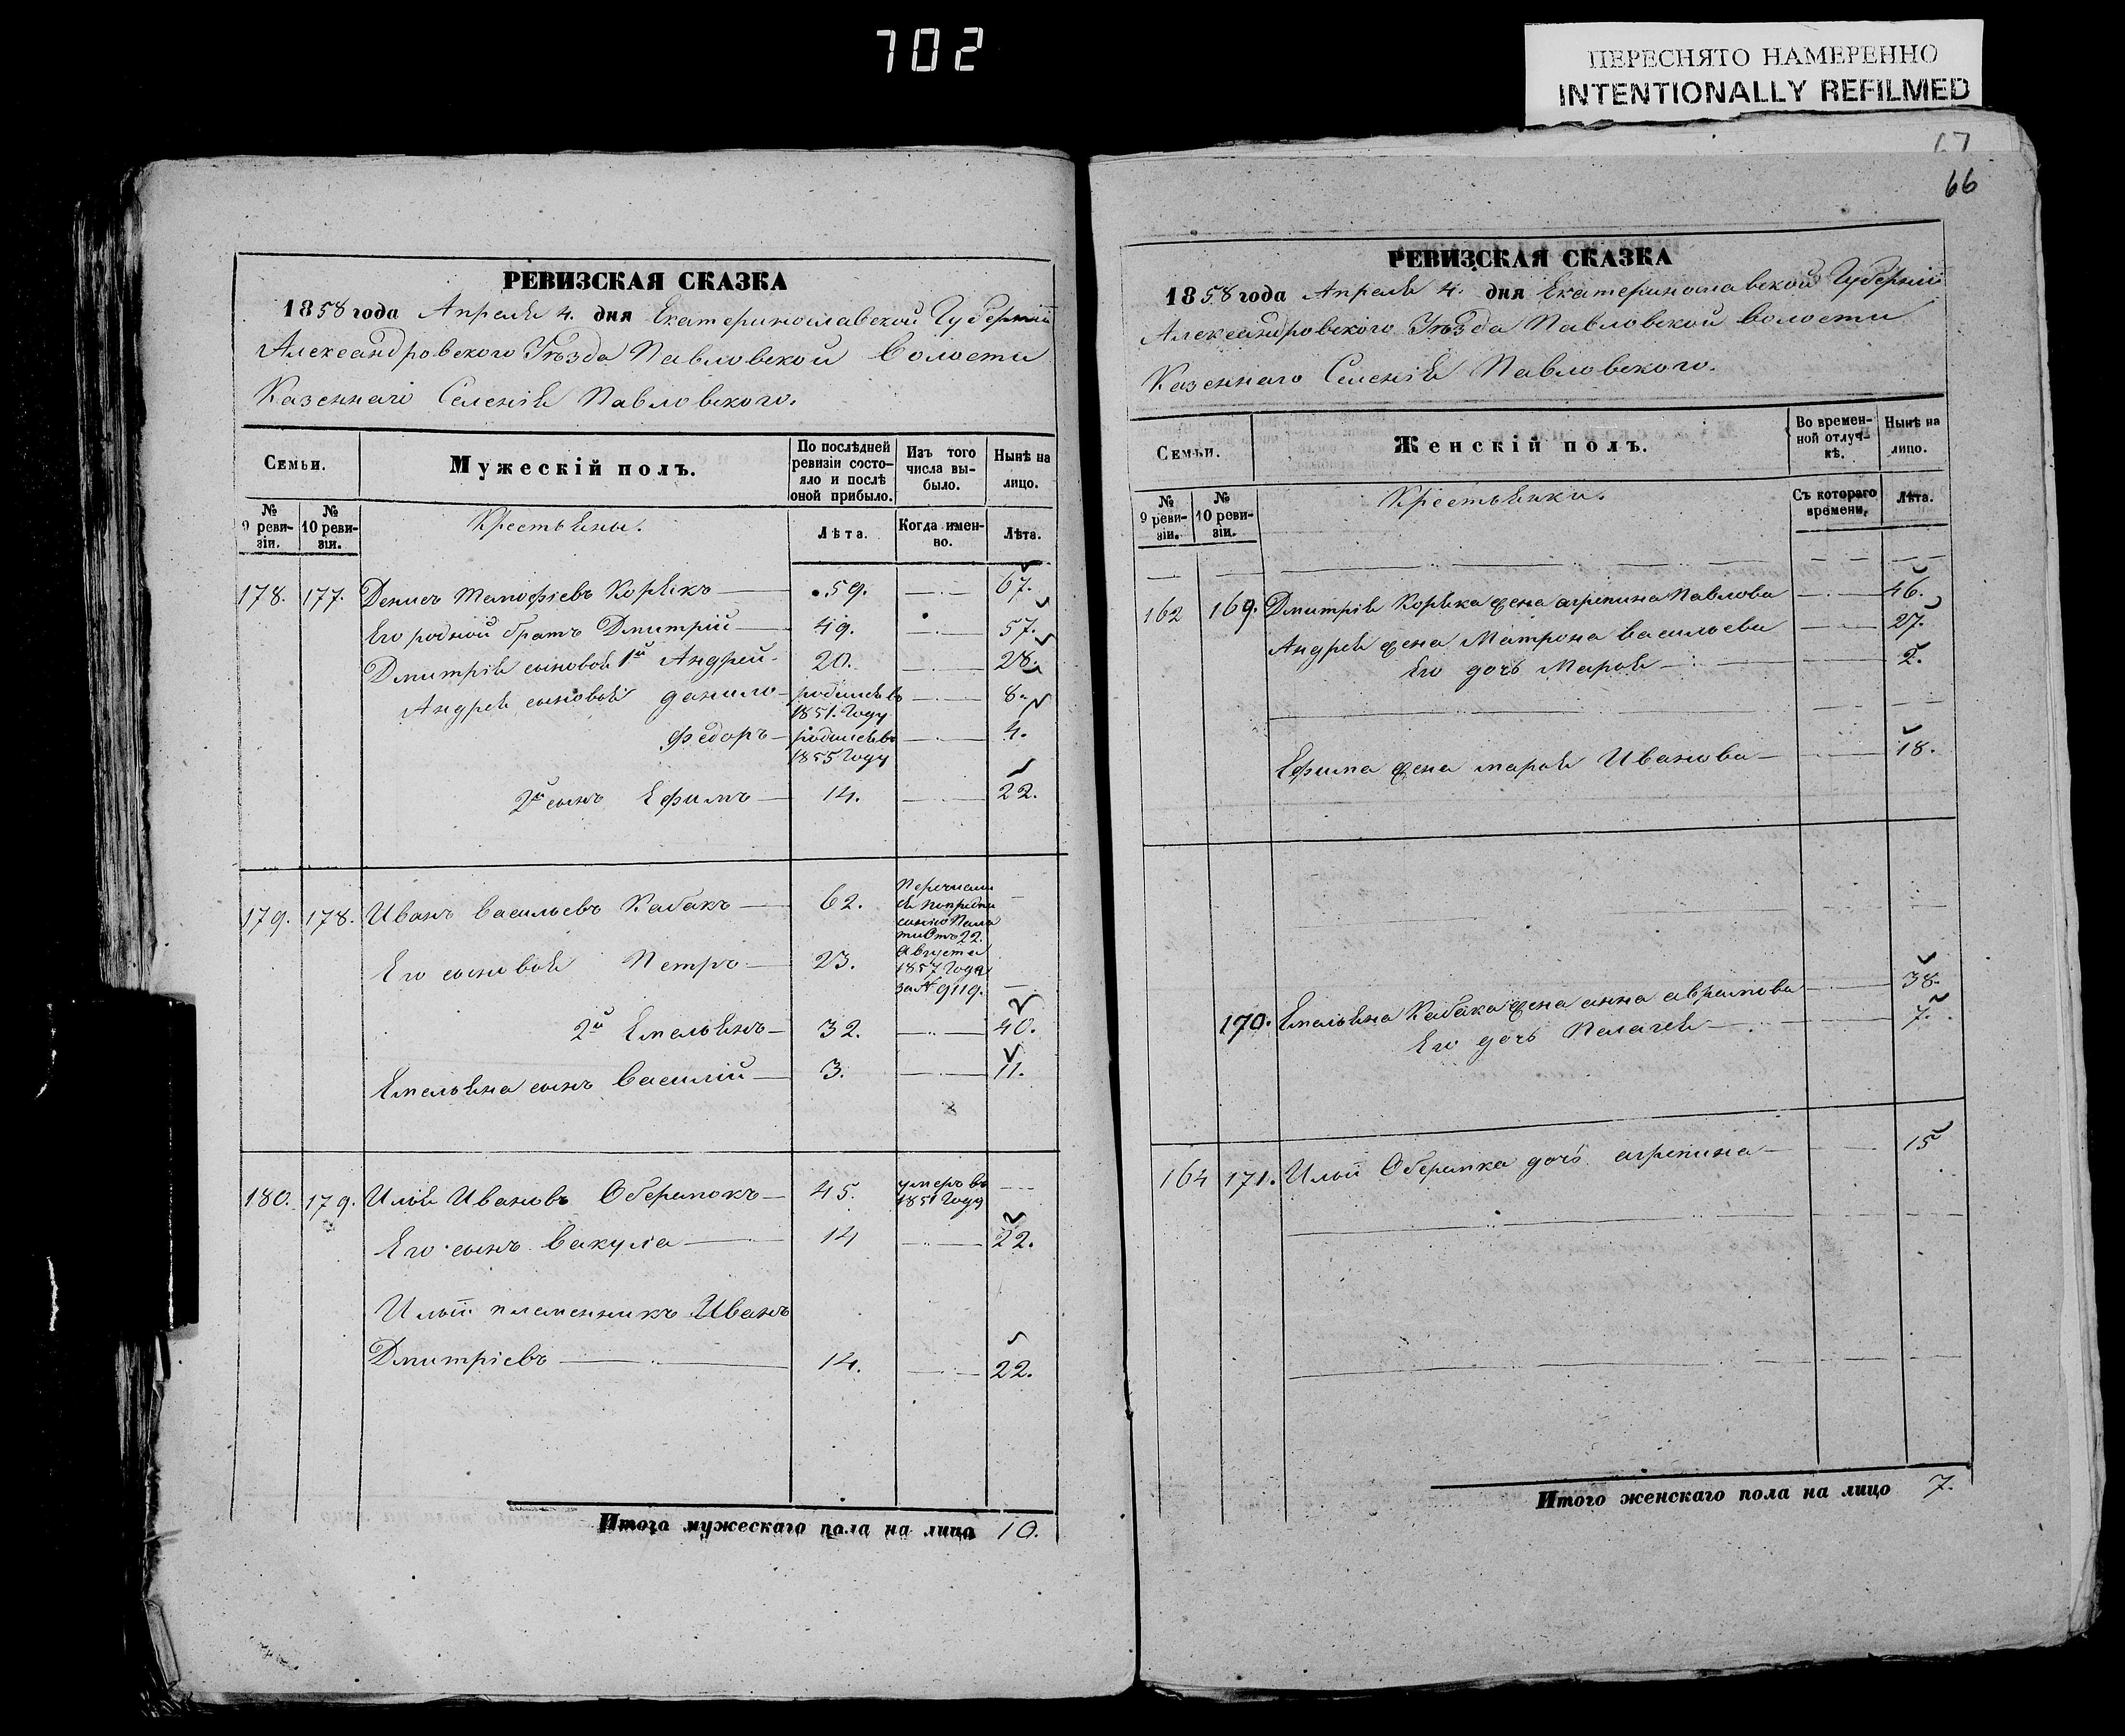 702
ПЕРЕСНЯТО НАМЕРЕННО
INTENTIONALLY REFILMED
РЕВИЗСКАЯ СКАЗКА
1858 года Апреля 4. дня Екатеринославской Губерніи
Александровского Уѣзда Павловской Волости
Казеннаго Селенія Павловского.
Семьи. Мужескій полъ. По послѣдней ревизіи состояло и послѣ оной прибыло. Изъ того числа выбыло. Нынѣ на лицо.
№ 9 ревизіи. № 10 ревизіи. Крестьяны. Лѣта. Когда именно. Лѣта.
178. 177. Денисъ Тимофіевъ Корякъ 59. 67.
Его родной братъ Дмитрій 49. 57.
Дмитрія сыновья 1й Андрей 20. 28.
Андрея сыновья данило родился въ 1851. Году 8.
Федоръ родился въ 1855 Году 4.
2й сынъ Ефимъ 14. 22.
179. 178. Иванъ васильевъ Кабакъ 62.
Его сыновья Петръ 23.
Августа
1857 Года
за № 9119.
2й Емельянъ 32. 40.
Емельяна сынъ Василій 3. 11.
180. 179. Илья Ивановъ Оберемокъ 45. умеръ въ 1851 Году
Его сынъ Вакула 14 22.
Ильи племенникъ Иванъ
Дмитріевъ 14. 22.
Итого мужескаго пола на лицо 10.
67
66
РЕВИЗСКАЯ СКАЗКА
1858 года Апреля 4. дня Екатеринославской Губерніи
Александровского Уѣзда Павловской волости
Казеннаго Селенія Павловского.
Семьи. Женскій полъ. Во временной отлучкѣ. Нынѣ на лицо.
№ 9 ревизіи. № 10 ревизіи. Крестьянки. Съ котораго времени. Лѣта.
162 169. Дмитрія Коряка жена агрипина Павлова 46.
Андрея жена Матрона васильева 27.
Его дочь Марья 2.
Ефима жена марья Иванова 18.
170. Емельяна Кабака жена анна аврамова 38.
Его дочь Пелагея 7.
164 171. Ильи Оберемка дочь агрипина 15
Итого женскаго пола на лицо 7.